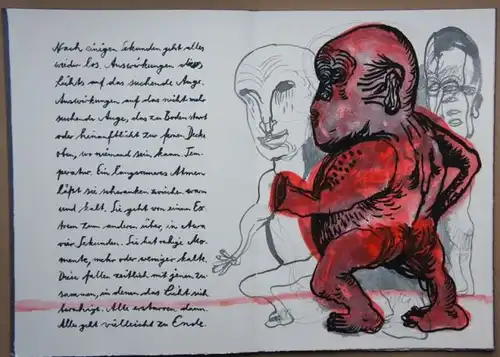 Nach einigen Sekunden geht alles
wieder los. Auswirkungen dieses
Lichts auf das suchende Auge.
Auswirkungen auf das nicht mehr
suchende Auge, das zu Boden starrt
oder heraufblickt zur fernen Decke
oben, wo niemand sein kann. Tem-
peratur. Ein langsameres Atmen
läßt sie schwanken zwischen warm
und kalt. Sie geht von einem Ex-
trem zum anderen über, in etwa
vier Sekunden. Sie hat ruhige Mo-
mente, mehr oder weniger kalte.
Diese fallen zeitlich mit jenen zu-
sammen, in denen das Licht sich
beruhigt. Alle erstarren dann.
Alles geht vielleicht zu Ende.